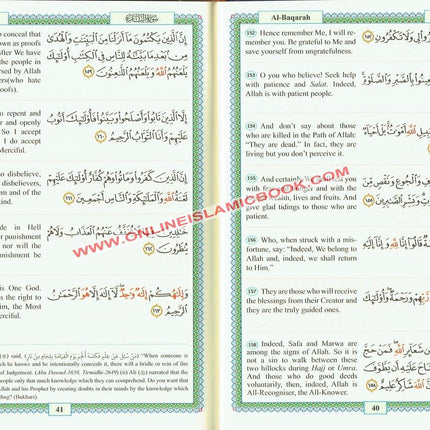 Al-Baqarah
152 Hence remember Me, I will re-
member you. Be grateful to Me and
save yourself from ungratefulness.
153 O you who believe! Seek help
with patience and Salat. Indeed,
Allah is with patient people.
بِالصَّبْرِ وَالصَّلَوٰةِ
154 And don't say about those
who are killed in the Path of Allah:
"They are dead." In fact, they are
living but you don't perceive it.
155 And certainly
with fear
wealth, lives and fruits. And
give glad tidings to those who are
patient.
وَالْجُوعِ وَنَقْصٍ مِّنَ
156 Who, when struck with a mis-
fortune, say: "Indeed, We belong to
Allah and, indeed, we shall return
to Him."
قَالُوٓا۟ إِنَّا لِلَّهِ وَإِنَّآ إِلَيْهِ
157 They are those who will receive
the blessings from their Creator and
they are the truly guided ones.
رَّبِّهِمْ وَرَحْمَةٌ وَأُو۟لَٰٓئِكَ
158 Indeed, Safa and Marwa are
among the signs of Allah. So it is
not a sin to walk between these
two hillocks during Hajj or Umra.
And those who do good deeds
voluntarily, then, indeed, Allah is
All-Recogniser, the All-Knower.
شَعَآئِرِ اللَّهِ فَمَنْ حَجَّ
شَاكِرٌ عَلِيمٌ
40
o conceal that
own as proofs
fter We have
the people in
rsed by Allah
ers (who hate
oofs).
إِنَّ الَّذِينَ يَكْتُمُونَ مَآ أَنزَلْنَا مِنَ الْبَيِّنَٰتِ وَالْهُدَىٰ
مِنۢ بَعْدِ مَا بَيَّنَّٰهُ لِلنَّاسِ فِى الْكِتَٰبِ أُو۟لَٰٓئِكَ
يَلْعَنُهُمُ اللَّهُ وَيَلْعَنُهُمُ اللَّٰعِنُونَ ١٥٩
o repent and
r and openly
So I accept
I do accept
Merciful.
إِلَّا الَّذِينَ تَابُوا۟ وَأَصْلَحُوا۟ وَبَيَّنُوا۟ فَأُو۟لَٰٓئِكَ أَتُوبُ
عَلَيْهِمْ وَأَنَا التَّوَّابُ الرَّحِيمُ ١٦٠
disbelieve,
disbelievers,
em and of the
ind.
إِنَّ الَّذِينَ كَفَرُوا۟ وَمَاتُوا۟ وَهُمْ كُفَّارٌ أُو۟لَٰٓئِكَ عَلَيْهِمْ
لَعْنَةُ اللَّهِ وَالْمَلَٰٓئِكَةِ وَالنَّاسِ أَجْمَعِينَ ١٦١
de in Hell
unishment
nor will the
خَٰلِدِينَ فِيهَا لَا يُخَفَّفُ عَنْهُمُ الْعَذَابُ وَلَا هُمْ
يُنظَرُونَ ١٦٢
is One God.
s the right to
im, the Most
erciful.
وَإِلَٰهُكُمْ إِلَٰهٌ وَٰحِدٌ لَّآ إِلَٰهَ إِلَّا هُوَ الرَّحْمَٰنُ
الرَّحِيمُ ١٦٣
said, "When someone is
ich he knows and he intentionally conceals it, there will a bridle or rein of fire
of Judgement. (Abu Dawud-3658, Tirmidhi-2649) (ii) Ali narrated that
people only that much knowledge which they can comprehend. Do you want that
Allah and his Prophet by creating doubts in their minds by the knowledge which
ding? (Bukhari).
41
WWW.ONLINEISLAMICBOOK.COM